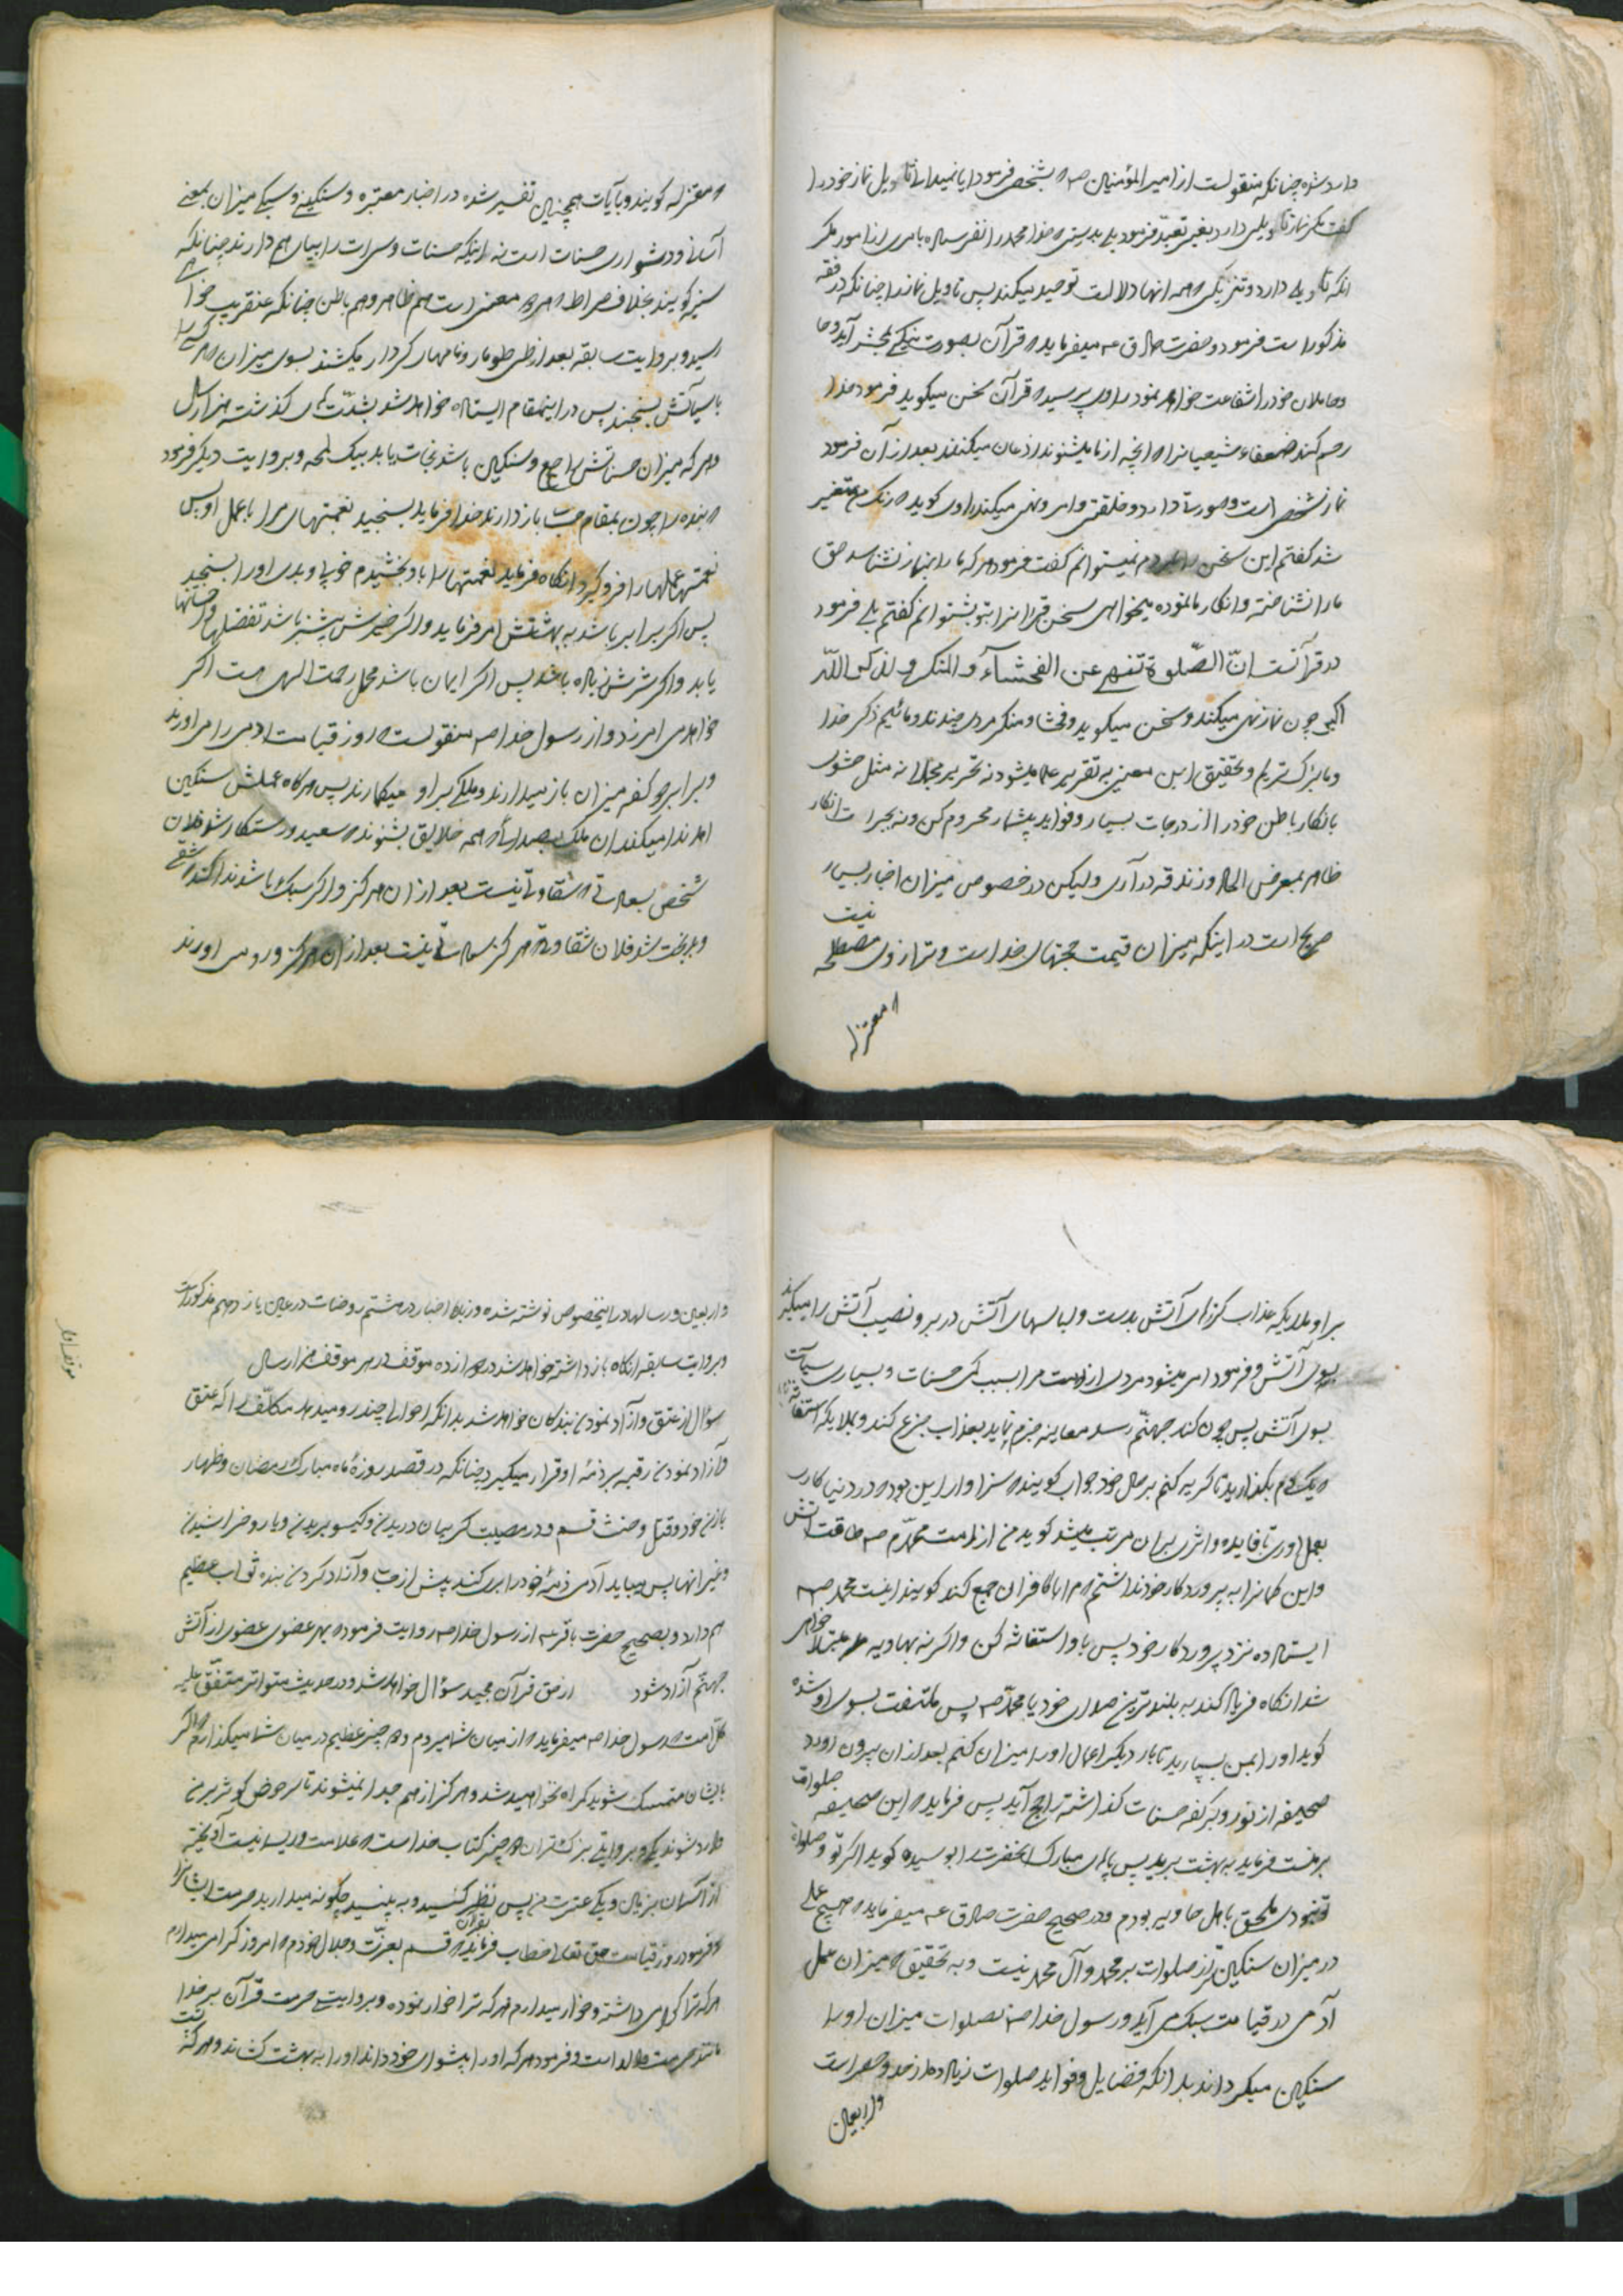 وارد شده چنانکه منقولست از امیرالمؤمنین ص که بشخصی فرمود ایا میدانی تاویل نماز خود را
گفت مگر نماز تاویلی دارد بغیر تعبد فرمود بلی بدرستی که خدا محمد را نفرستاده بامری از امور مگر
انکه تاویلی دارد و تنزیلی و همه انها دلالت توحید میکند پس تاویل نماز را چنانکه در فقه
مذکور است فرمود و حضرت صادق ع میفرماید که قرآن بصورت نیکی بمحشر آید و ما
و حاملان خود را شفاعت خواهد نمود راوی پرسید که قرآن سخن میگوید فرمود خدا
رحم کند ضعفاء شیعیانرا که انچه از ما میشنوند اذعان میکنند بعد از آن فرمود
نماز شخصی است و صورت دارد و خلقتی و امر و نهی میکند راوی کوید که رنک من متغیر
شد گفتم این سخن را بمردم نمیتوانم گفت فرمود هر که ما را بنماز نشناسد حق
ما را نشناخته و انکار ما نموده میخواهی سخن قرآنرا بتو بشنوانم گفتم بلی فرمود
در قرآنست انّ الصّلوة تنهی عن الفحشآء و المنکر و لذکر اللّه
اکبر چون نماز نهی میکند و سخن میگوید و فحشا و منکر مردی چندند و مائیم ذکر خدا
و ما بزرکتریم و تحقیق این معنی به تقریر علما میشود نه تحریر مجملا نه مثل حشوی
بانکار باطن خود را از درجات بسیار و فواید بیشمار محروم کن و نه بجرات انکار
ظاهر بمعرض الحاد و زندقه در آری ولیکن در خصوص میزان اخبار بسیار
صریح است در اینکه میزان قیمت حجتهای خداست و ترازوی مصطلحه نیست
که معتزله
که معتزله کویند و بآیات همچنین تفسیر شده در اخبار معتبره و سنکینی و سبکی میزان بمعنی
آسانی و دشواری حسنات است نه اینکه حسنات و سیئات را بیان هم دارند چنانکه
سنیه کویند بخلاف صراط که هر دو معنی است هم ظاهر و هم باطن چنانکه عنقریب خواهی
رسید و بروایت سابقه بعد از طی طومار و نامهای کردار میکشند بسوی میزان که هر کس را
با سیآتش بسنجند پس در اینمقام ایستاده خواهد شد بشدتهای کذشته هزار سال
و هر که میزان حسناتش راجح و سنکین باشد نجات یابد بیک لمحه و بروایت دیکر فرمود
که بنده را چون بمقام حساب باز دارند خدا فرماید بسنجید نعمتهای مرا با عمل او پس
نعمتها عملها را فرو گیرد انکاه فرماید نعمتها را باو بخشیدم خوبی و بدی او را بسنجید
پس اکر برابر باشد به بهشتش امر فرماید و اکر خیرش بیشتر باشد تفضلها و احسانها
یابد و اکر شرش زیاده باشد پس اکر ایمان باشد محل رحمت الهی هست اکر
خواهد می امرزد و از رسول خدا ص منقولست که روز قیامت ادمی را می اورند
و برابر دو کفه میزان باز میدارند و ملکی بر او میکمارند پس هرکاه عملش سنکین
امد ندا میکند ان ملک بصدائی که همه خلایق بشنوند که سعید و رستکار شد فلان
شخص بسعادتی که شقاوتی نیست بعد از ان هرکز و اکر سبک باشد ندا کند که شقی
و بدبخت شد فلان بشقاوتی که هرکز سعادتی نیست بعد از ان هرکز و رو می اورند
بر او ملایکه عذاب کرزهای آتش بدست و لباسهای آتش در بر و نصیب آتش را میکیرند
بسوی آتش و فرمود امر میشود مردی از امت مرا بسبب کمی حسنات و بسیاری سیآت
بسوی آتش پس چون کنار جهنّم رسد معاینه جزم نماید بعذاب جزع کند و بملایکه استغاثه نماید
که یکدم بکذارید تا کریه کنم بر حال خود جواب کویند که سزاوار این بود که در دنیا کاری
بعمل اوری تا فایده و اثری بران مرتب میشد کوید من از امت محمّدم ص طاقت آتش
و این کمانرا به پروردکار خود نداشتم که مرا با کافران جمع کند کویند اینست محمد ص
ایستاده نزد پروردکار خود پس باو استغاثه کن و اکر نه بهاویه مبتلا خواهی
شد انکاه فریاد کند به بلند ترین صدای خود یا محمّد ص پس ملتفت بسوی او شده
کوید او را بمن بسپارید تا بار دیکر اعمال او را میزان کنم بعد از ان بیرون اورد
صحیفه از نور و بر کفه حسنات کذاشته راجح آید پس فرماید که این صحیفه صلوات
بر منست فرماید به بهشت برید پس پای مبارک انحضرت را بوسیده کوید اکر تو و صلوات
تو نبودی ملحق باهل هاویه بودم و در صحیح حضرت صادق ع میفرماید که هیچ عملی
در میزان سنکین تر از صلوات بر محمد و آل محمد نیست و به تحقیق که میزان عمل
آدمی در قیامت سبک می آید و رسول خدا ص بصلوات میزان او را
سنکین میکرداند بدانکه فضایل و فواید صلوات زیاده از حد و حصر است
و اربعین
و اربعین و رسالها در اینخصوص نوشته شده و زبده اخبار در هشتم روضات در عین یازدهم مذکور است
و بروایت سابقه انکاه باز داشته خواهد شد در دوازده موقف در هر موقف هزار سال
سؤال از عتق و آزاد نمودن بندکان خواهد شد بدانکه احوالی چند رو میدهد مکلّف را که عتق
و آزاد نمودن رقبه بر ذمّه او قرار میکیرد چنانکه در قصد روزهٔ ماه مبارک رمضان و ظهار
با زن خود و قتل و حنث قسم و در مصیبت کریبان دریدن و کیسو بریدن و یا رو خراشیدن
و غیر انها پس میباید آدمی ذمّهٔ خود را بری کند پیش از موت و آزاد کردن بنده ثواب عظیم
هم دارد و بصحیح حضرت باقر ع از رسول خدا ص روایت فرموده بهر عضوی عضوی از آتش
جهنّم آزاد شود از حق قرآن مجید سؤال خواهد شد و در حدیث متواتر متفّق علیه
کل امت که رسول خدا ص میفرماید که از میان شما میروم و دو چیز عظیم در میان شما میکذارم که اکر
بایشان متمسک شوید کمراه نخواهید شد و هرکز از هم جدا نمیشوند تا بر حوض کوثر بر من
وارد شوند یکی و بروایتی بزرکتر ان دو چیز کتاب خداست که علامت و ریسمانیست آویخته
از آسمان بزمین و یکی عترت من پس نظر کنید و به بینید چکونه میدارید حرمت ایشانرا
و فرمود روز قیامت حق تعالی خطاب بقرآن فرماید که قسم بعزّت و جلال خودم که امروز کرامی میدارم
هر که ترا کرامی داشته و خوار میدارم هر که ترا خوار نموده و بروایت حرمت قرآن بر خدا
مانند حرمت والد است و فرمود هر که او را پیشوای خود داند او را به بهشت کشاند و هر که